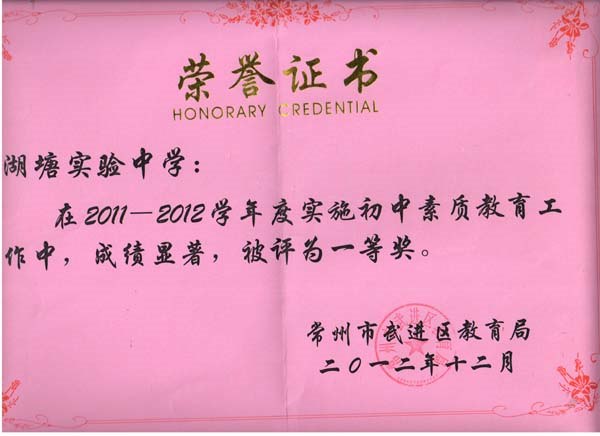 荣誉证书
HONORARY CREDENTIAL
湖塘实验中学：
在2011—2012学年度实施初中素质教育工
作中，成绩显著，被评为一等奖。
常州市武进区教育局
二〇一二年十二月